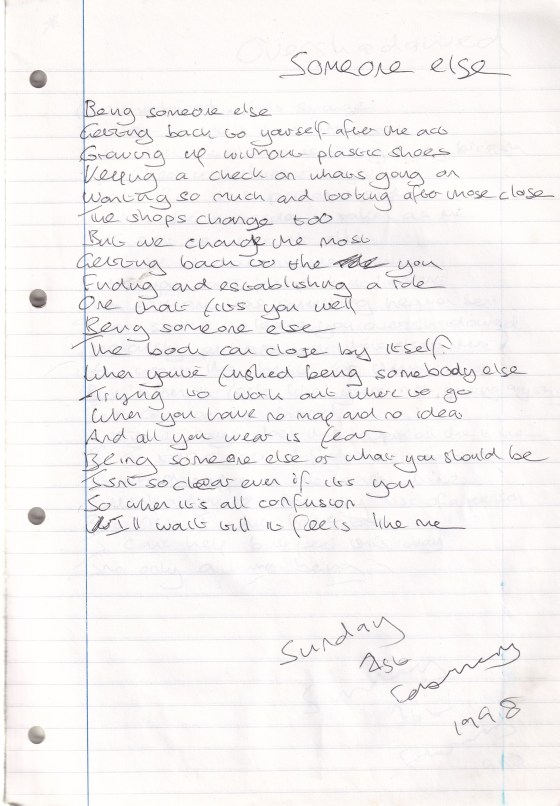 Someone else
Being someone else
Getting back to yourself after the act
Growing up without plastic shoes
Keeping a check on whats going on
Wanting so much and looking after those close
The shops change too
But we change the most
Getting back to the you
Finding and establishing a role
One that fits you well
Being someone else
The book can close by itself
When you've finished being somebody else
Trying to work out where to go
When you have no map and no idea
And all you wear is fear
Being someone else or what you should be
Isnt so clear even if its you
So when it's all confusion
I'll wait till it feels like me
Sunday
1st
February
1998